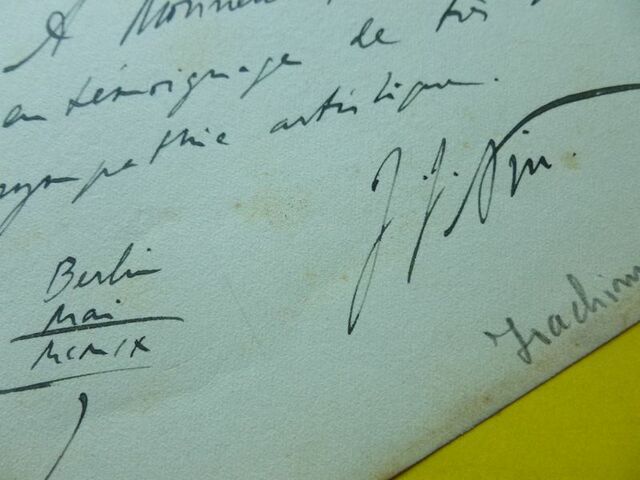 A Monsieur
en témoignage de très
sympathie artistique.
J. J. Nin.
Berlin
Mai
MCMIX
Joachim